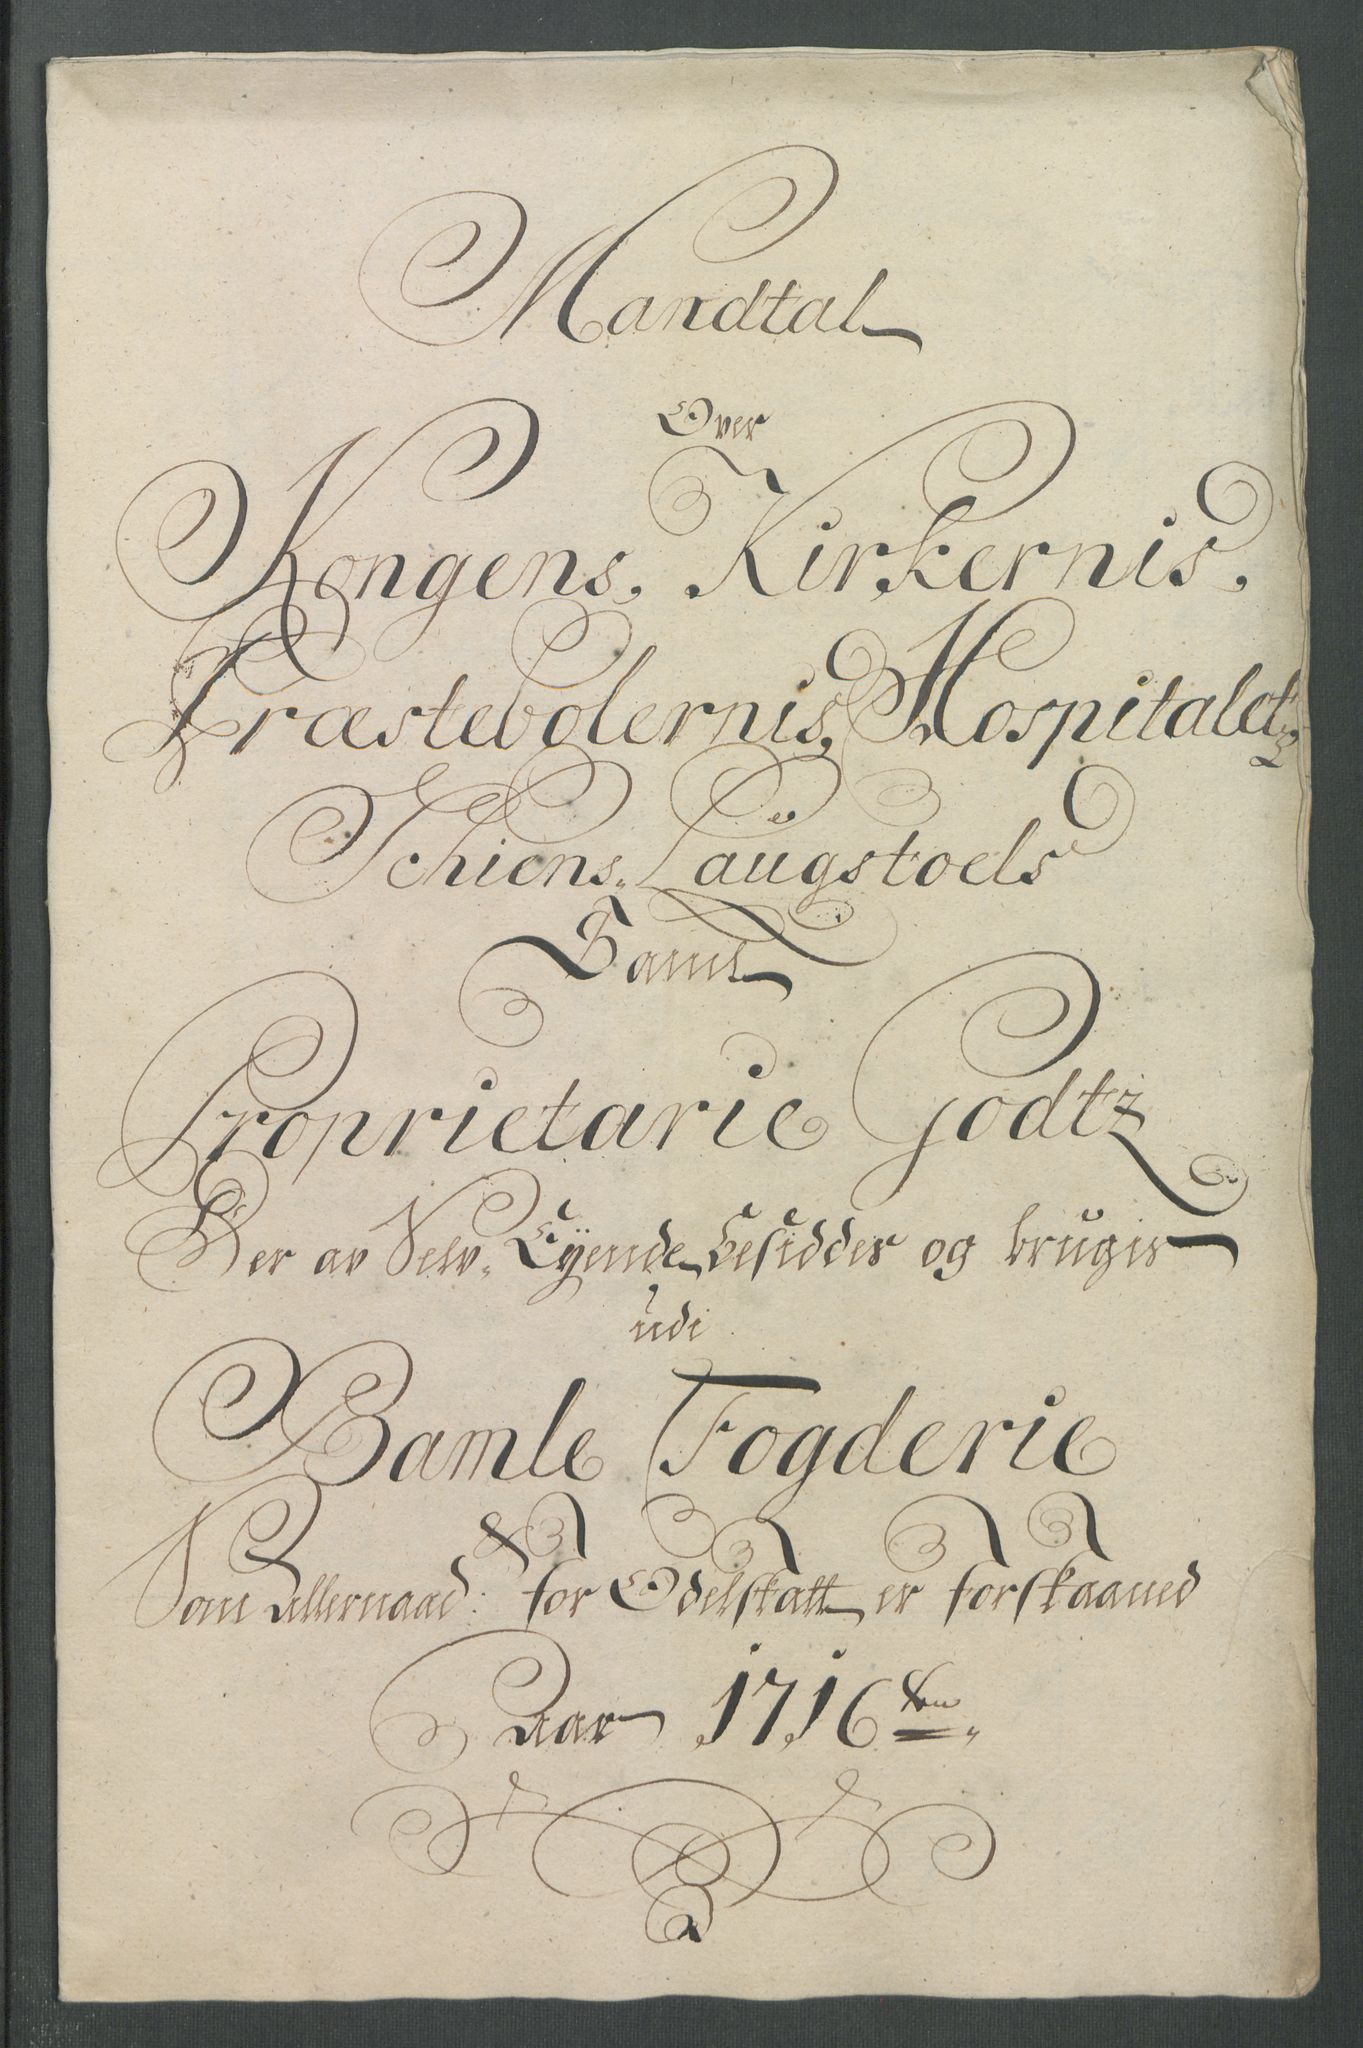 Mandtal
Over
Kongens, Kirkernis,
Præstebolernis, Hospitaletz
Schiens, Laugstoels
Samt
Proprietarie Godtz
Der av Selv-Eÿende besiddes og brugis
udi
Bamle Fogderie
Som allernaad: for Odelskatt er forskaaned
Aar 1716